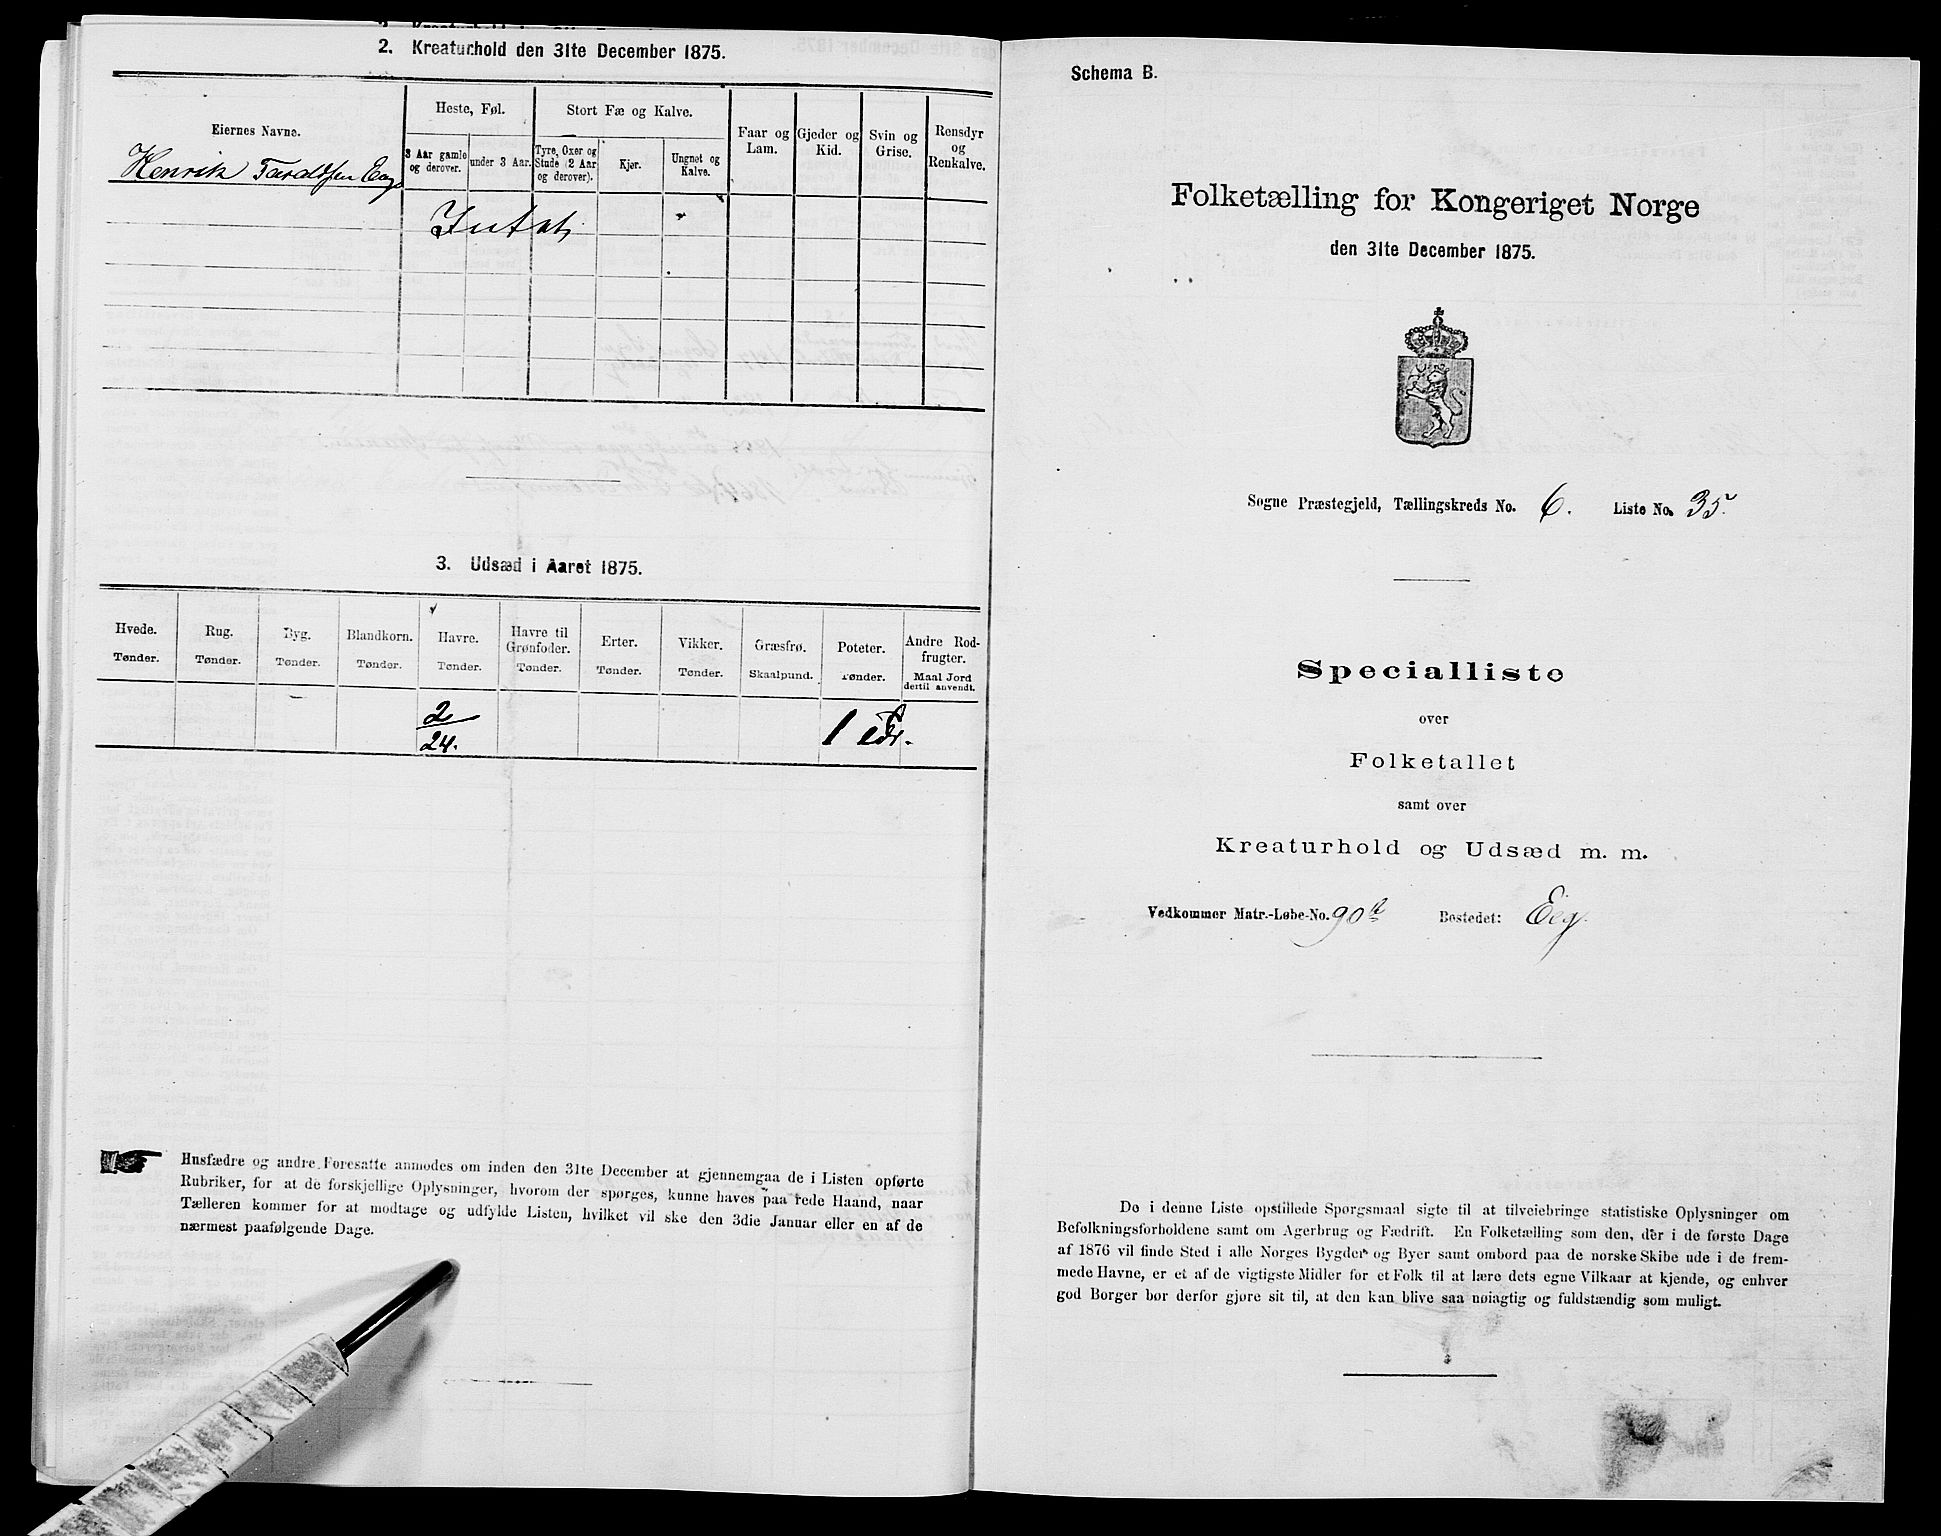 2. Kreaturhold den 31te December 1875.
Eiernes Navne.
Heste, Føl.
3 Aar gamle og derover.
under 3 Aar.
Stort Fæ og Kalve.
Tyre, Oxer og Stude (2 Aar og derover).
Kjør.
Ungnet og Kalve.
Faar og Lam.
Gjeder og Kid.
Svin og Grise.
Rensdyr og Renkalve.
Henrik Taraldsen
Intet
3. Udsæd i Aaret 1875.
Hvede. Tønder.
Rug. Tønder.
Byg. Tønder.
Blandkorn. Tønder.
Havre. Tønder.
Havre til Grønfoder. Tønder.
Erter. Tønder.
Vikker. Tønder.
Græsfrø. Skaalpund.
Poteter. Tønder.
Andre Rodfrugter. Maal Jord dertil anvendt.
2/24.
1
Husfædre og andre Foresatte anmodes om inden den 31te December at gjennemgaa de i Listen opførte
Rubriker, for at de forskjellige Oplysninger, hvorom der spørges, kunne haves paa rede Haand, naar
Tælleren kommer for at modtage og udfylde Listen, hvilket vil ske den 3die Januar eller en af de
nærmest paafølgende Dage.
Schema B.
Folketælling for Kongeriget Norge
den 31te December 1875.
Sogne Præstegjeld, Tællingskreds No. 6. Liste No. 35.
Specialliste
over
Folketallet
samt over
Kreaturhold og Udsæd m. m.
Vedkommer Matr.-Løbe-No. 90 Bostedet: Eeg.
De i denne Liste opstillede Spørgsmaal sigte til at tilveiebringe statistiske Oplysninger om
Befolkningsforholdene samt om Agerbrug og Fædrift. En Folketælling som den, der i de første Dage
af 1876 vil finde Sted i alle Norges Bygder og Byer samt ombord paa de norske Skibe ude i de frem-
mede Havne, er et af de vigtigste Midler for et Folk til at lære dets egne Vilkaar at kjende, og enhver
god Borger bør derfor gjøre sit til, at den kan blive saa nøiagtig og fuldstændig som muligt.